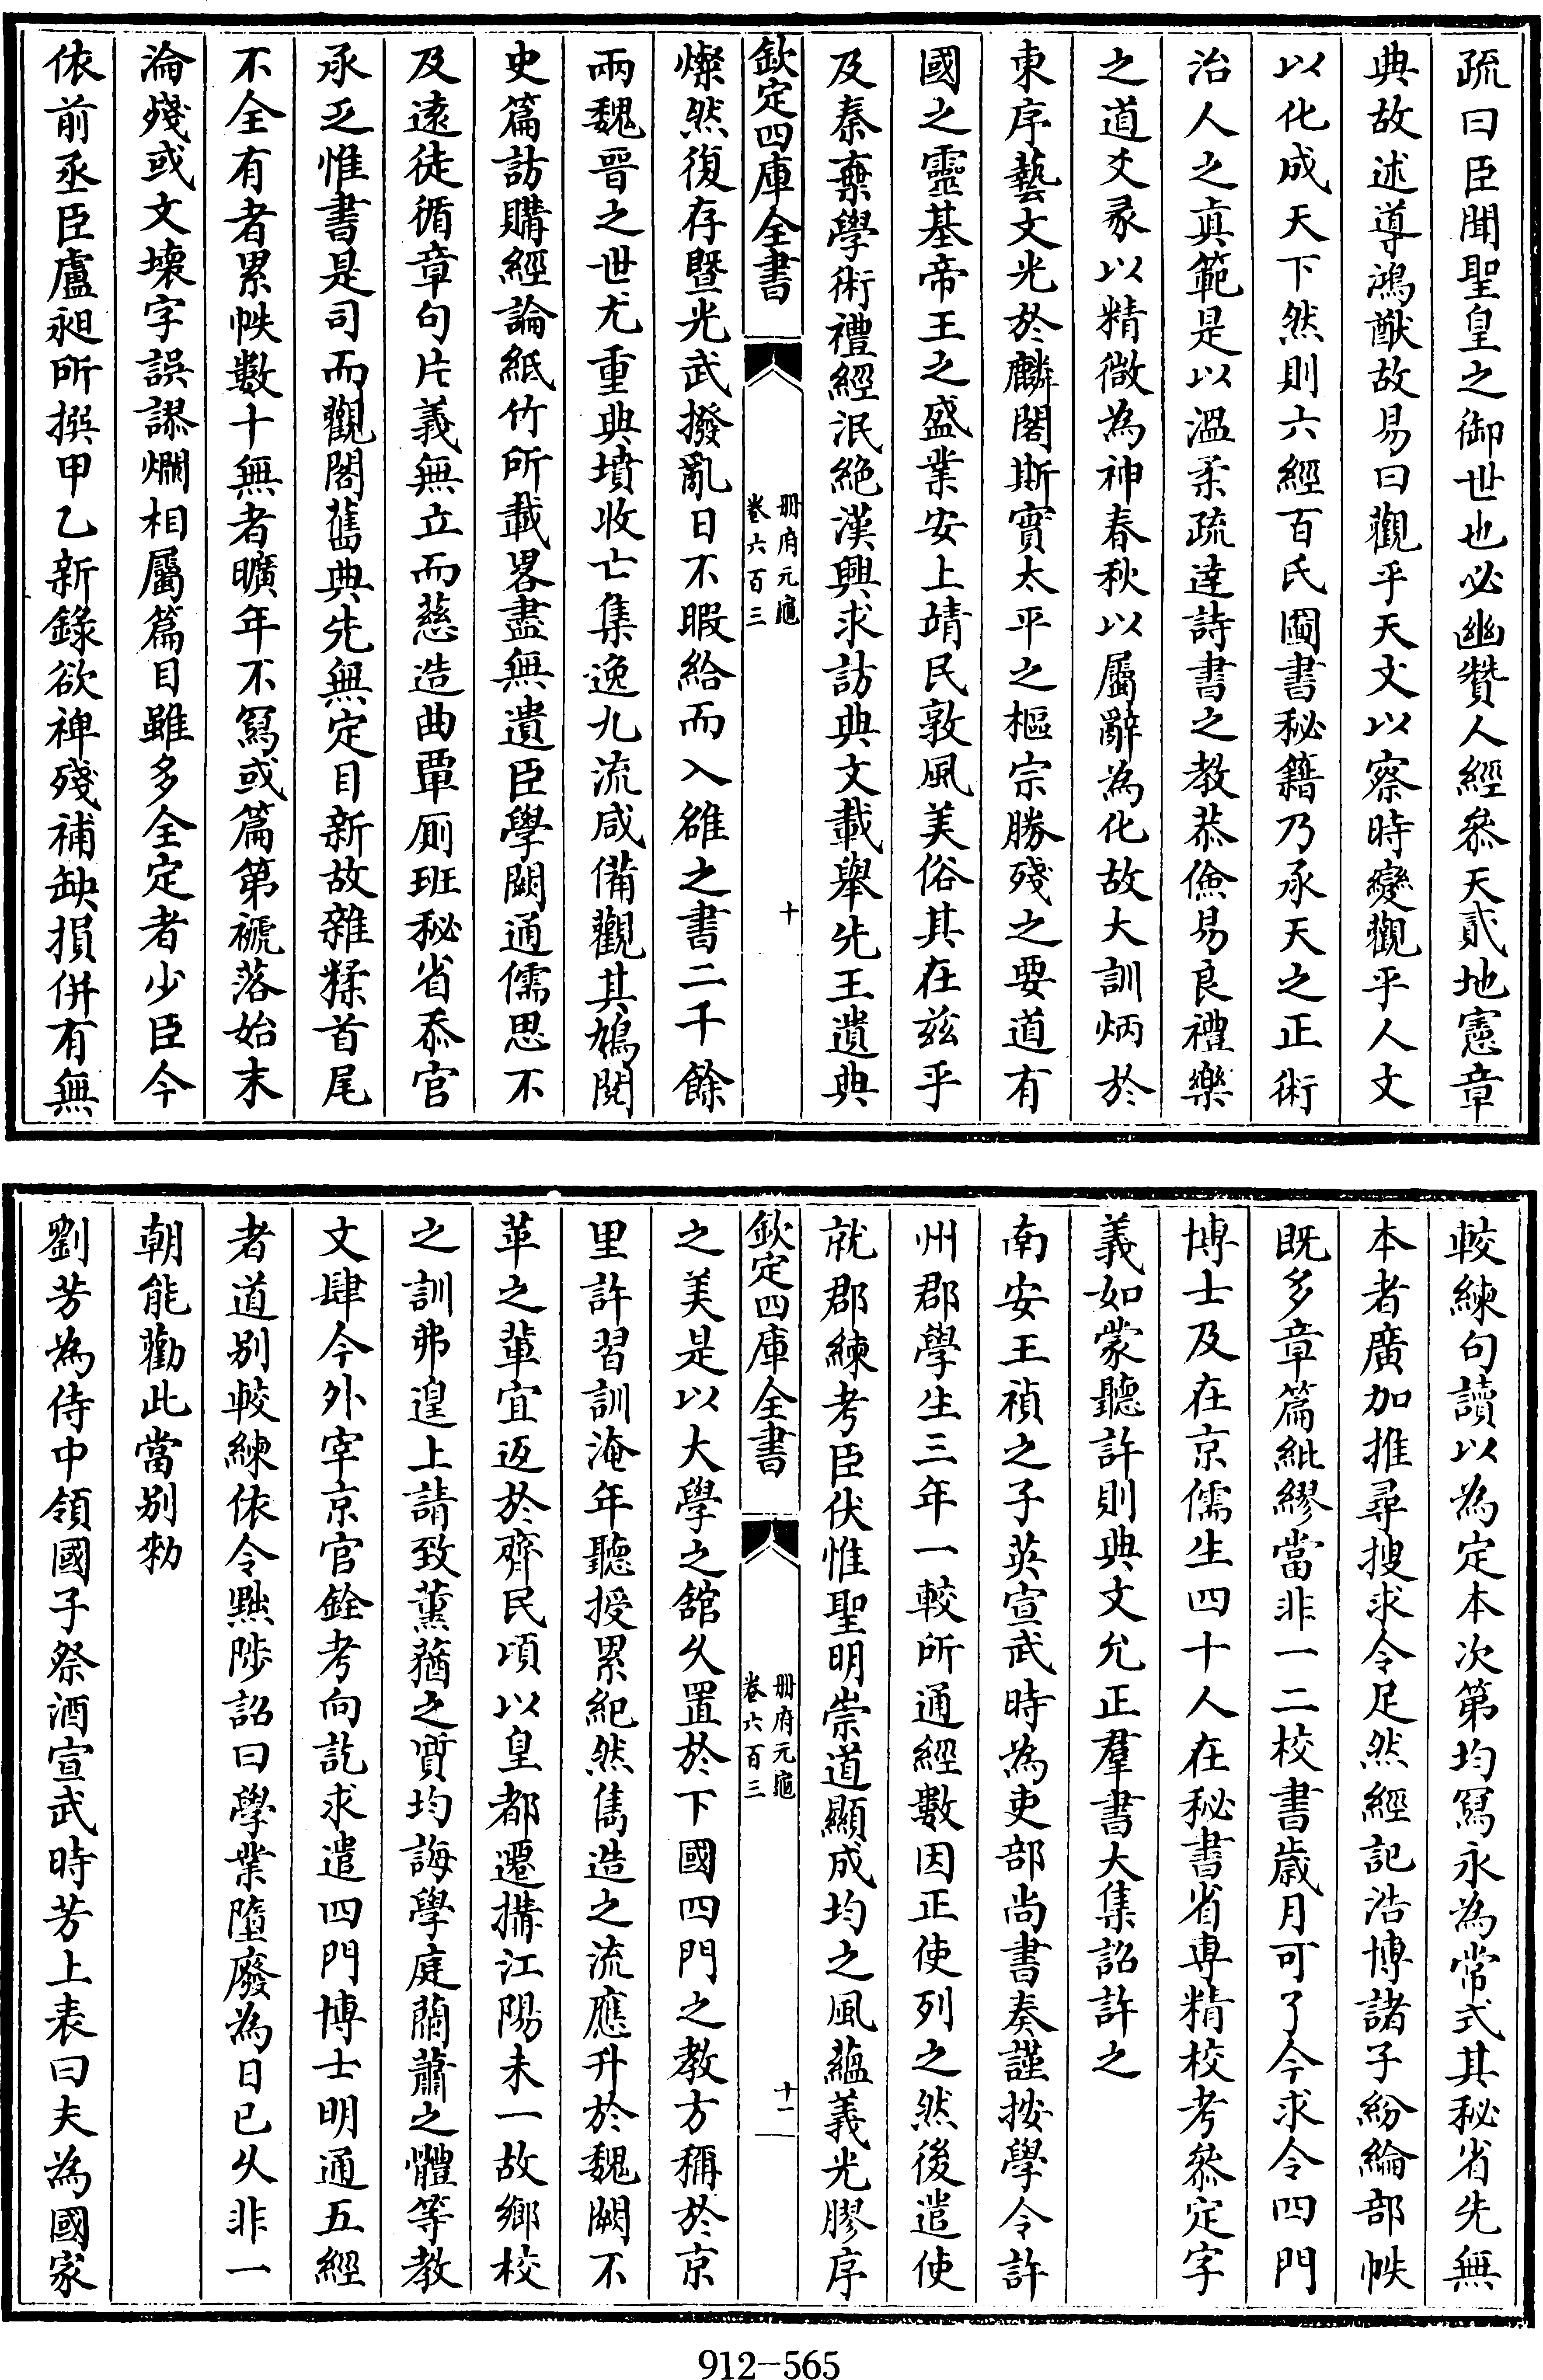 疏曰臣聞聖皇之御世也必幽贊人經叅天貳地憲章
典故述導鴻猷故易曰觀乎天文以察時變觀乎人文
以化成天下然則六經百氏圖書秘籍乃承天之正術
治人之眞範是以溫柔疏逹詩書之教恭儉易良禮樂
之道爻彖以精微為神春秋以屬辭為化故大訓炳於
東序藝文光於麟閣斯實太平之樞宗勝殘之要道有
國之靈基帝王之盛業安上靖民敦風美俗其在兹乎
及秦棄學術禮經泯絶漢興求訪典文載舉先王遺典
欽定四庫全書
册府元龜
卷六百三
十
燦然復存暨光武撥亂日不暇給而入雒之書二千餘
兩魏晉之世尤重典墳收亡集逸九流咸備觀其鳩閱
史篇訪購經論紙竹所載畧盡無遺臣學闕通儒思不
及遠徒循章句片義無立而慈造曲覃厠班秘省忝官
承乏惟書是司而觀閣舊典先無定目新故雜糅首尾
不全有者累帙數十無者曠年不冩或篇第褫落始末
淪殘或文壞字誤謬爛相屬篇目雖多全定者少臣今
依前丞臣盧昶所撰甲乙新錄欲裨殘補缺損併有無
較練句讀以為定本次第均冩永為常式其秘省先無
本者廣加推尋搜求令足然經記浩博諸子紛綸部帙
既多章篇紕繆當非一二校書歲月可了今求令四門
博士及在京儒生四十人在秘書省專精校考叅定字
義如蒙聽許則典文允正羣書大集詔許之
南安王禎之子英宣武時為吏部尚書奏謹按學令許
州郡學生三年一較所通經數因正使列之然後遣使
就郡練考臣伏惟聖明崇道顯成均之風蘊義光膠序
欽定四庫全書
册府元龜
卷六百三
十一
之美是以大學之舘久置於下國四門之教方稱於京
里許習訓淹年聽授累紀然儁造之流應升於魏闕不
革之輩宜返於齊民頃以皇都遷搆江陽未一故鄉校
之訓弗遑上請致薰蕕之質均誨學庭蘭蕭之體等教
文肆今外宰京官銓考向訖求遣四門博士明通五經
者道别較練依令黜陟詔曰學業墮廢為日已久非一
朝能勸此當别勑
劉芳為侍中領國子祭酒宣武時芳上表曰夫為國家
912-565